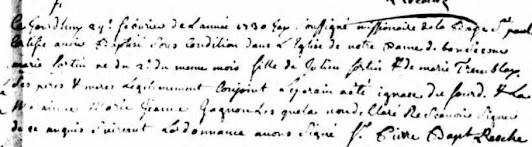 Ce jourdhuy 27e février de l'année 1730 Je soussigné missionaire de la Baye St paul
Certifie avoir Baptisé sous Condition dans l'Eglise de notre Dame de
marie fortin né du 21 du meme mois fille de Julien fortin & de marie Tremblay
Ses peres & meres Légitimement Conjoint Le parain a été ignace & La
Maraine Marie Jeanne Gagnon Lesquels nous declaré ne sçavoir Signer
de ce enquis suivant L'ordonnance avons Signé fr. Pierre Bapt Resche